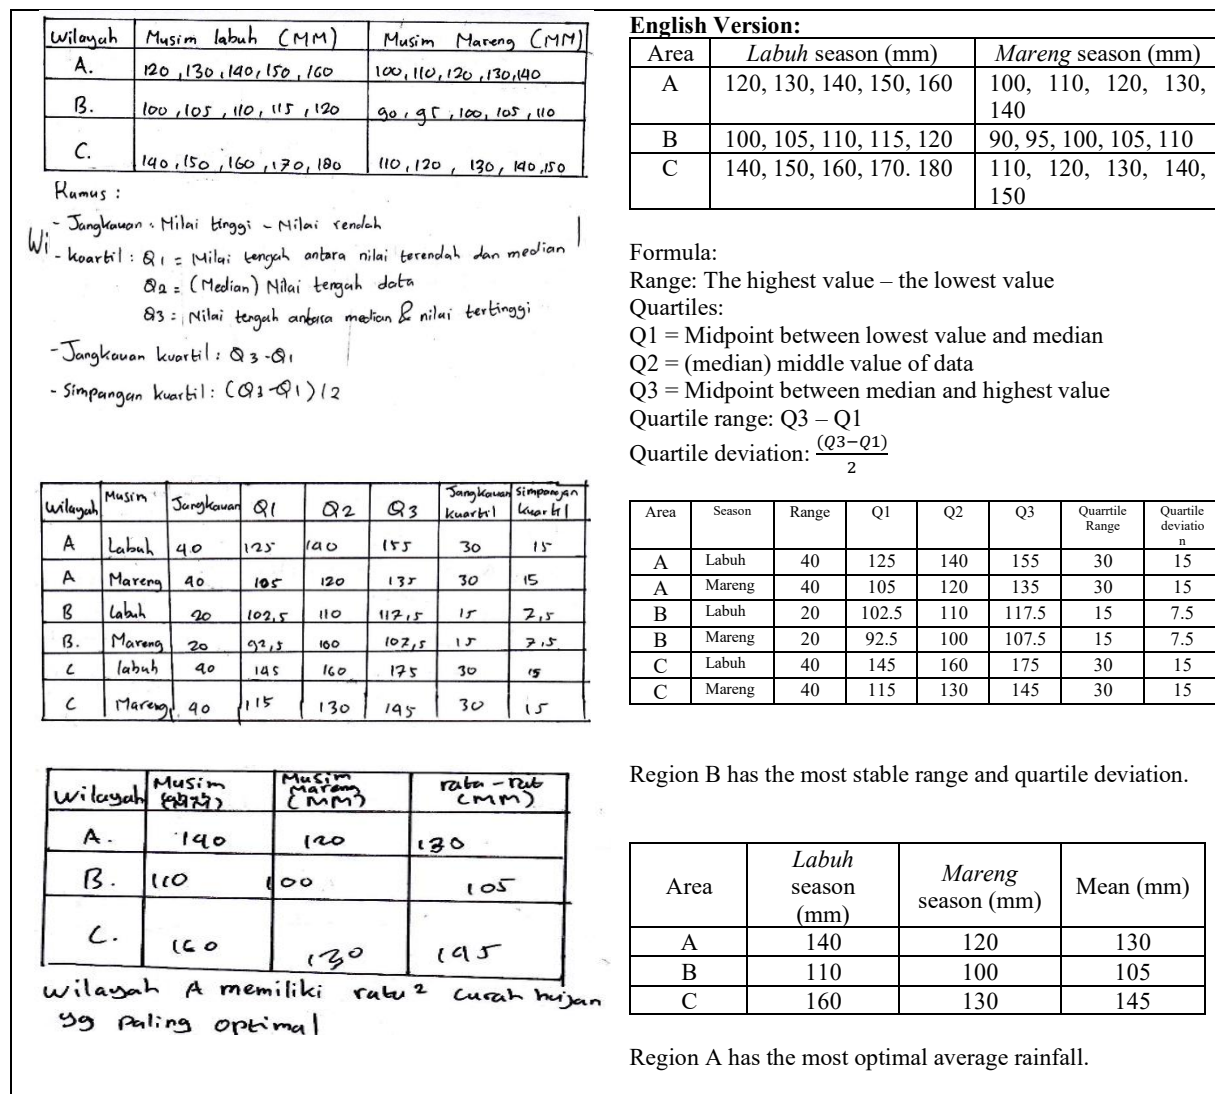 Wilayah Musim labuh (MM) Musim Mareng (MM)
A. 120, 130, 140, 150, 160 100, 110, 120, 130, 140
B. 100, 105, 110, 115, 120 90, 95, 100, 105, 110
C. 140, 150, 160, 170, 180 110, 120, 130, 140, 150
Rumus :
- Jangkauan : Nilai tinggi - Nilai rendah
Wi
- koartil : Q1 = Nilai tengah antara nilai terendah dan median
Q2 = (Median) Nilai tengah data
Q3 = Nilai tengah antara median & nilai tertinggi
- Jangkauan kuartil : Q3-Q1
- Simpangan kuartil : (Q3-Q1)/2
Wilayah Musim Jangkauan Q1 Q2 Q3 Jangkauan kuartil Simpangan kuartil
A Labuh 40 125 140 155 30 15
A Mareng 40 105 120 135 30 15
B Labuh 20 102,5 110 117,5 15 7,5
B. Mareng 20 92,5 100 107,5 15 7,5
C labuh 40 145 160 175 30 15
C Mareng 40 115 130 145 30 15
Wilayah Musim (MM) Musim Mareng (MM) rata-rat (MM)
A. 140 120 130
B. 110 100 105
C. 160 130 145
Wilayah A memiliki rata² curah hujan
yg paling optimal
English Version:
Area Labuh season (mm) Mareng season (mm)
A 120, 130, 140, 150, 160 100, 110, 120, 130,
140
B 100, 105, 110, 115, 120 90, 95, 100, 105, 110
C 140, 150, 160, 170. 180 110, 120, 130, 140,
150
Formula:
Range: The highest value – the lowest value
Quartiles:
Q1 = Midpoint between lowest value and median
Q2 = (median) middle value of data
Q3 = Midpoint between median and highest value
Quartile range: Q3 – Q1
Quartile deviation: (Q3−Q1)
2
Area Season Range Q1 Q2 Q3 Quarrtile Range Quartile deviatio n
A Labuh 40 125 140 155 30 15
A Mareng 40 105 120 135 30 15
B Labuh 20 102.5 110 117.5 15 7.5
B Mareng 20 92.5 100 107.5 15 7.5
C Labuh 40 145 160 175 30 15
C Mareng 40 115 130 145 30 15
Region B has the most stable range and quartile deviation.
Area Labuh season (mm) Mareng season (mm) Mean (mm)
A 140 120 130
B 110 100 105
C 160 130 145
Region A has the most optimal average rainfall.